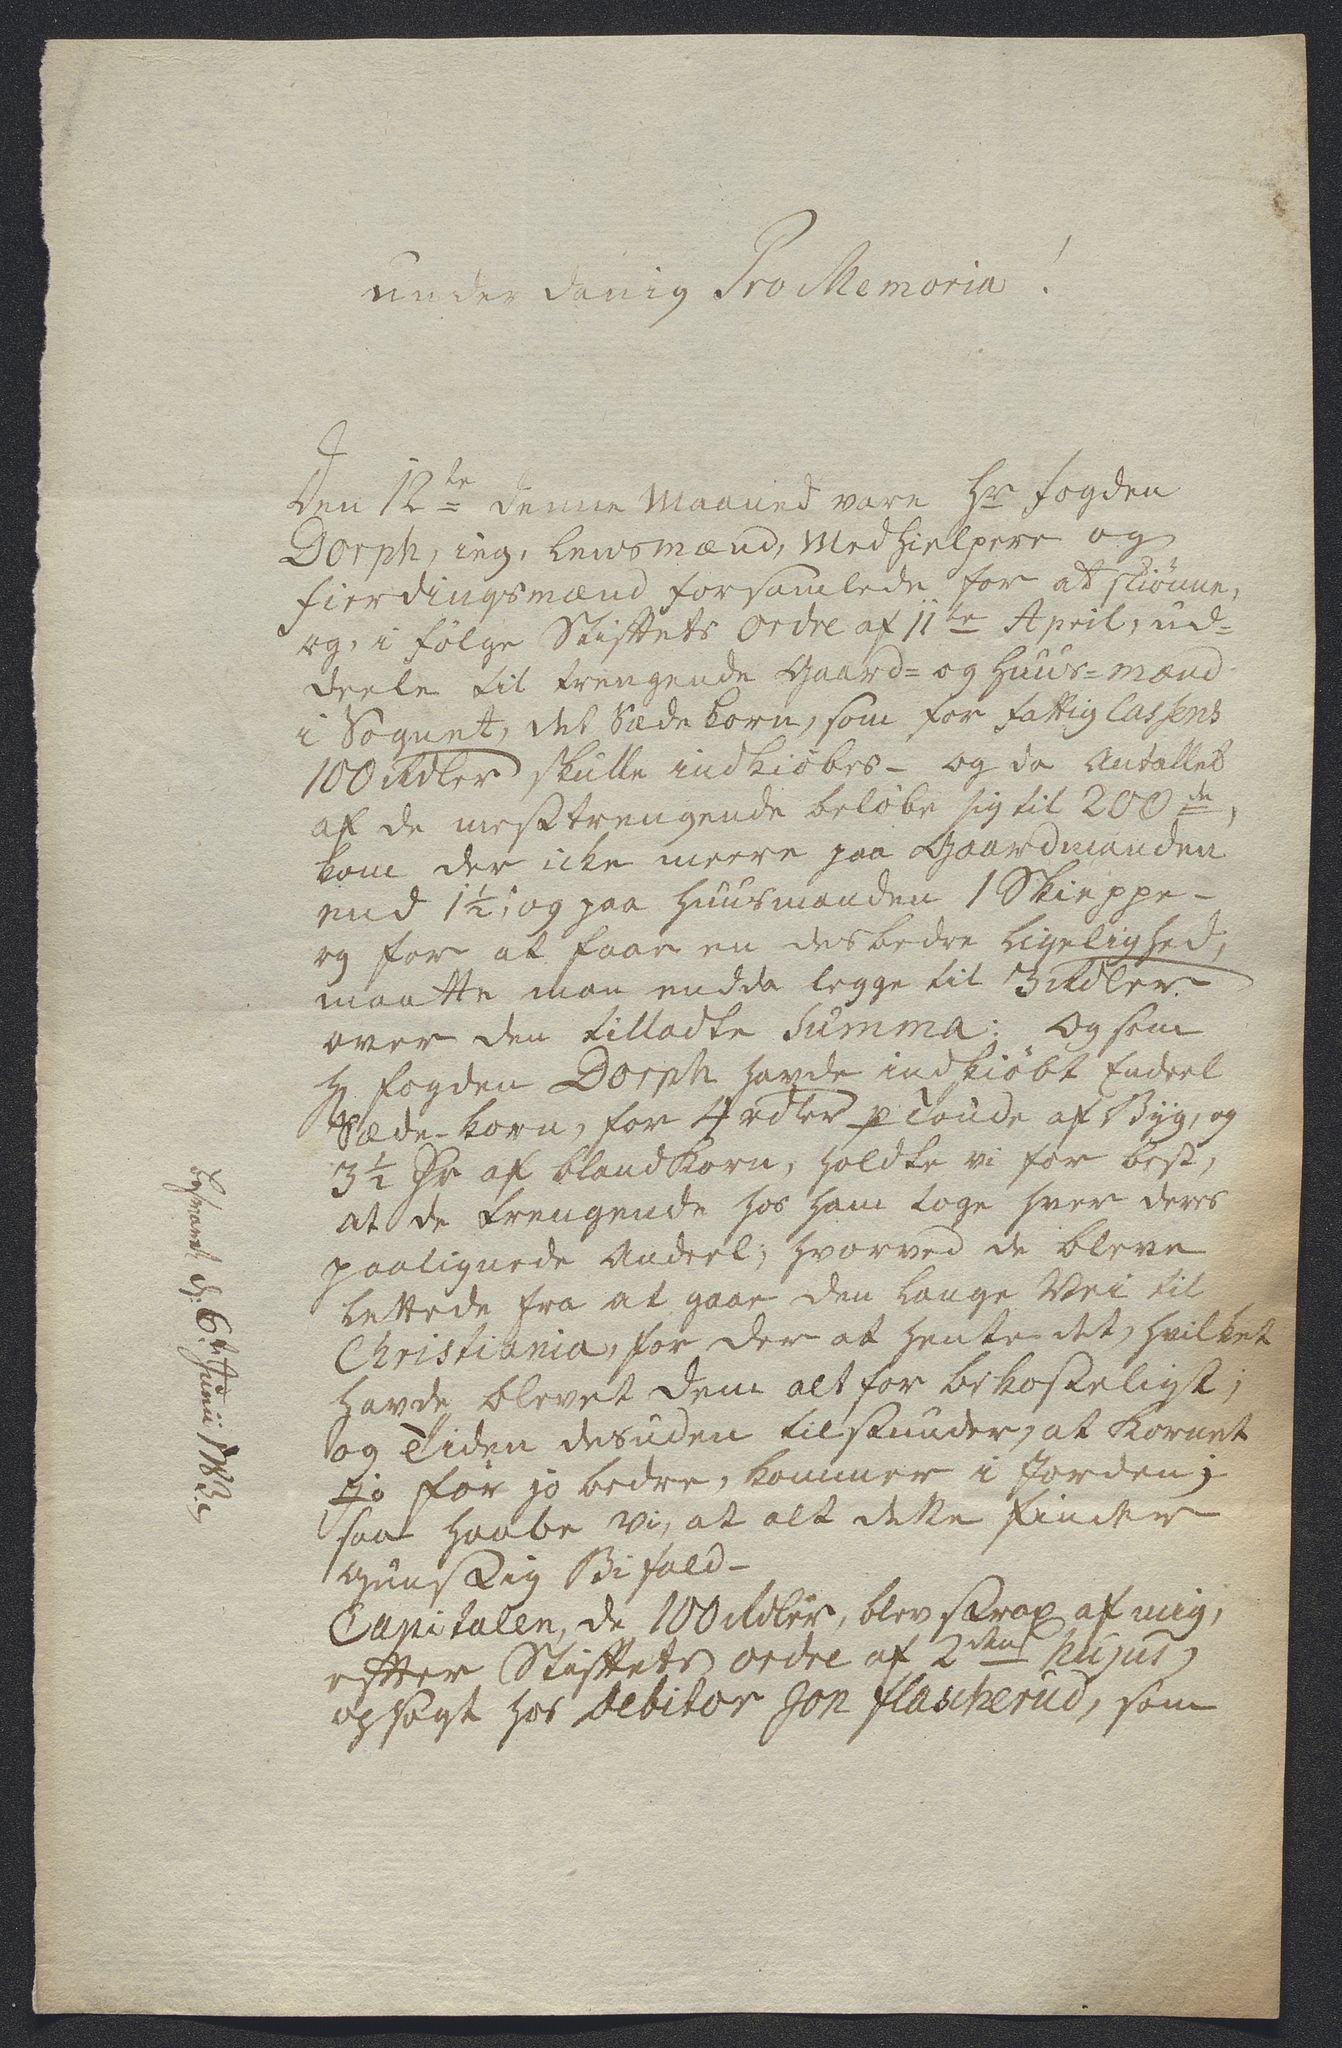 underdanig Pro Memoria!
Den 12te denne Maaned vare Hr Fogden
Dorph, ieg, Lensmænd, Medhielpere og
Fierdingsmænd forsamlede for at skiønne,
og, i følge Stiftets Ordre af 11te April, ud=
deele til trengende Gaard= og Huus=mænd
i Sognet, det Sædekorn, som for Fattig Cassens
100 Rdler skulle indkiøbes - og da Antallet
af de mest trengende beløbe sig til 200de,
kom der icke meere paa Gaardmanden
end 1½, og paa Huusmanden 1 Skieppe -
og for at faae en desbedre Ligelighed,
maatte man endda legge til 3 Rdler
over den tilladte Summa: Og som
Hr Fogden Dorph havde indkiøbt Endeel
Sæde-korn, for 4 rdler p Tønde af Byg, og
3½ Dr af blandkorn, holdte vi for best,
at de trengende hos ham toge hver deres
paalignede Andeel; hvorved de bleve
lettede fra at gaae den lange Vei til
Christiania, for der at hente det, hvilket
havde blevet dem alt for bekosteligt;
og Tiden desuden tilstunder, at Kornet
jo før jo bedre, kommer i Jorden;
saa haabe vi, at alt dette finder
Gunstig Bifald -
Capitalen, de 100 Rdler, blev strax af mig,
efter Stiftets ordre af 2den hujus,
opsagt hos Debitor Jon Flascherud, som
besvaret d: 6te Junii